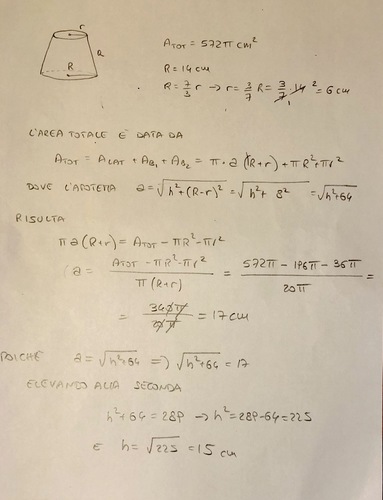 r
a
R
A_TOT = 572π cm²
R = 14 cm
R = 7/3 r → r = 3/7 R = 3/7 · 14 = 6 cm
L'AREA TOTALE È DATA DA
A_TOT = A_LAT + A_B1 + A_B2 = π · a (R+r) + πR² + πr²
DOVE L'APOTEMA a = √(h² + (R-r)²) = √(h² + 8²) = √(h² + 64)
RISULTA
π a (R+r) = A_TOT - πR² - πr²
a = (A_TOT - πR² - πr²) / (π (R+r)) = (572π - 196π - 36π) / (20π) =
= 340π / 20π = 17 cm
POICHÉ a = √(h² + 64) ⇒ √(h² + 64) = 17
ELEVANDO ALLA SECONDA
h² + 64 = 289 → h² = 289 - 64 = 225
E h = √225 = 15 cm